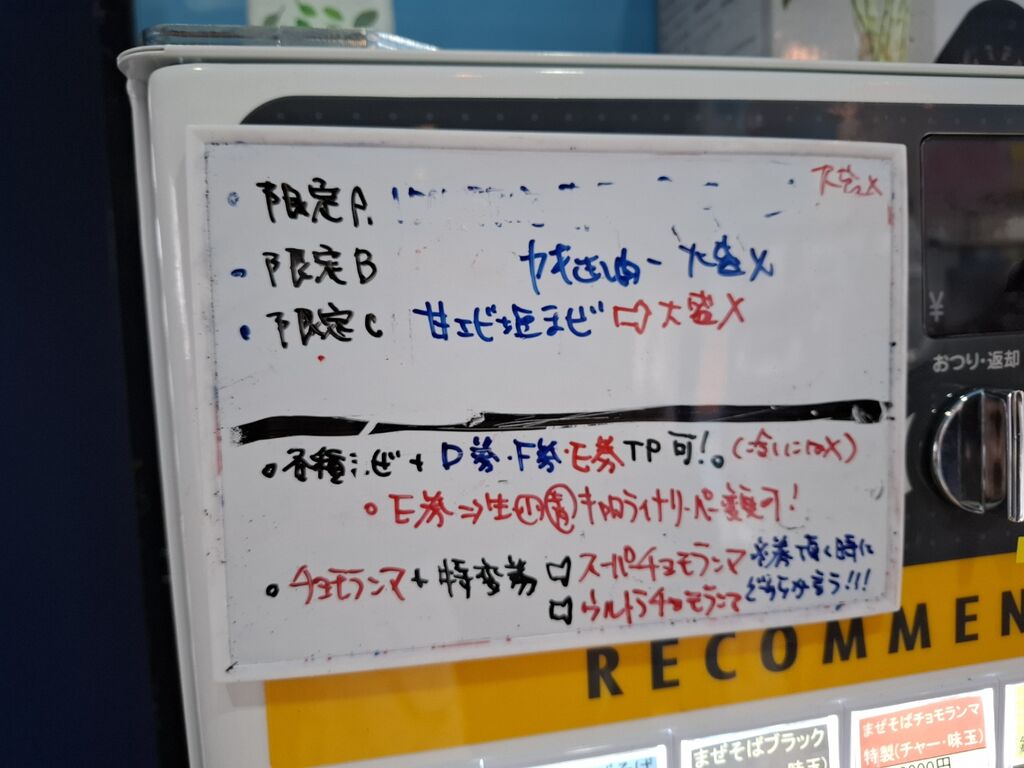 ・限定A. 大盛X
・限定B 大盛X
・限定C 甘エビ塩まぜ⇨大盛X
・各種まぜ+D券・F券・E券TP可!。
・E券⇒生 キャロライナリーパー変更可!
・チョモランマ+特変券 □スーパーチョモランマ
□ウルトラチョモランマ
食券頂く時に
どちらか言う!!!
¥
おつり・返却
RECOMMEN
まぜそばブラック
味玉)
まぜそばチョモランマ
特製(チャー・味玉)